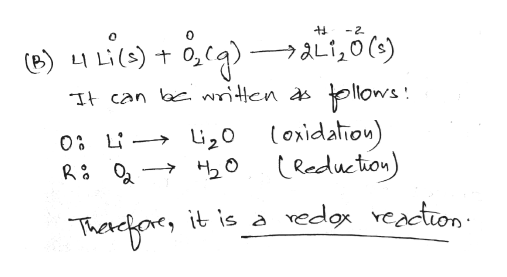 0 0 +1 -2
(B) 4 Li(s) + O₂(g) → 2Li₂O(s)
It can be written as follows:
O: Li → Li₂O (oxidation)
R: O₂ → H₂O (Reduction)
Therefore, it is a redox reaction.